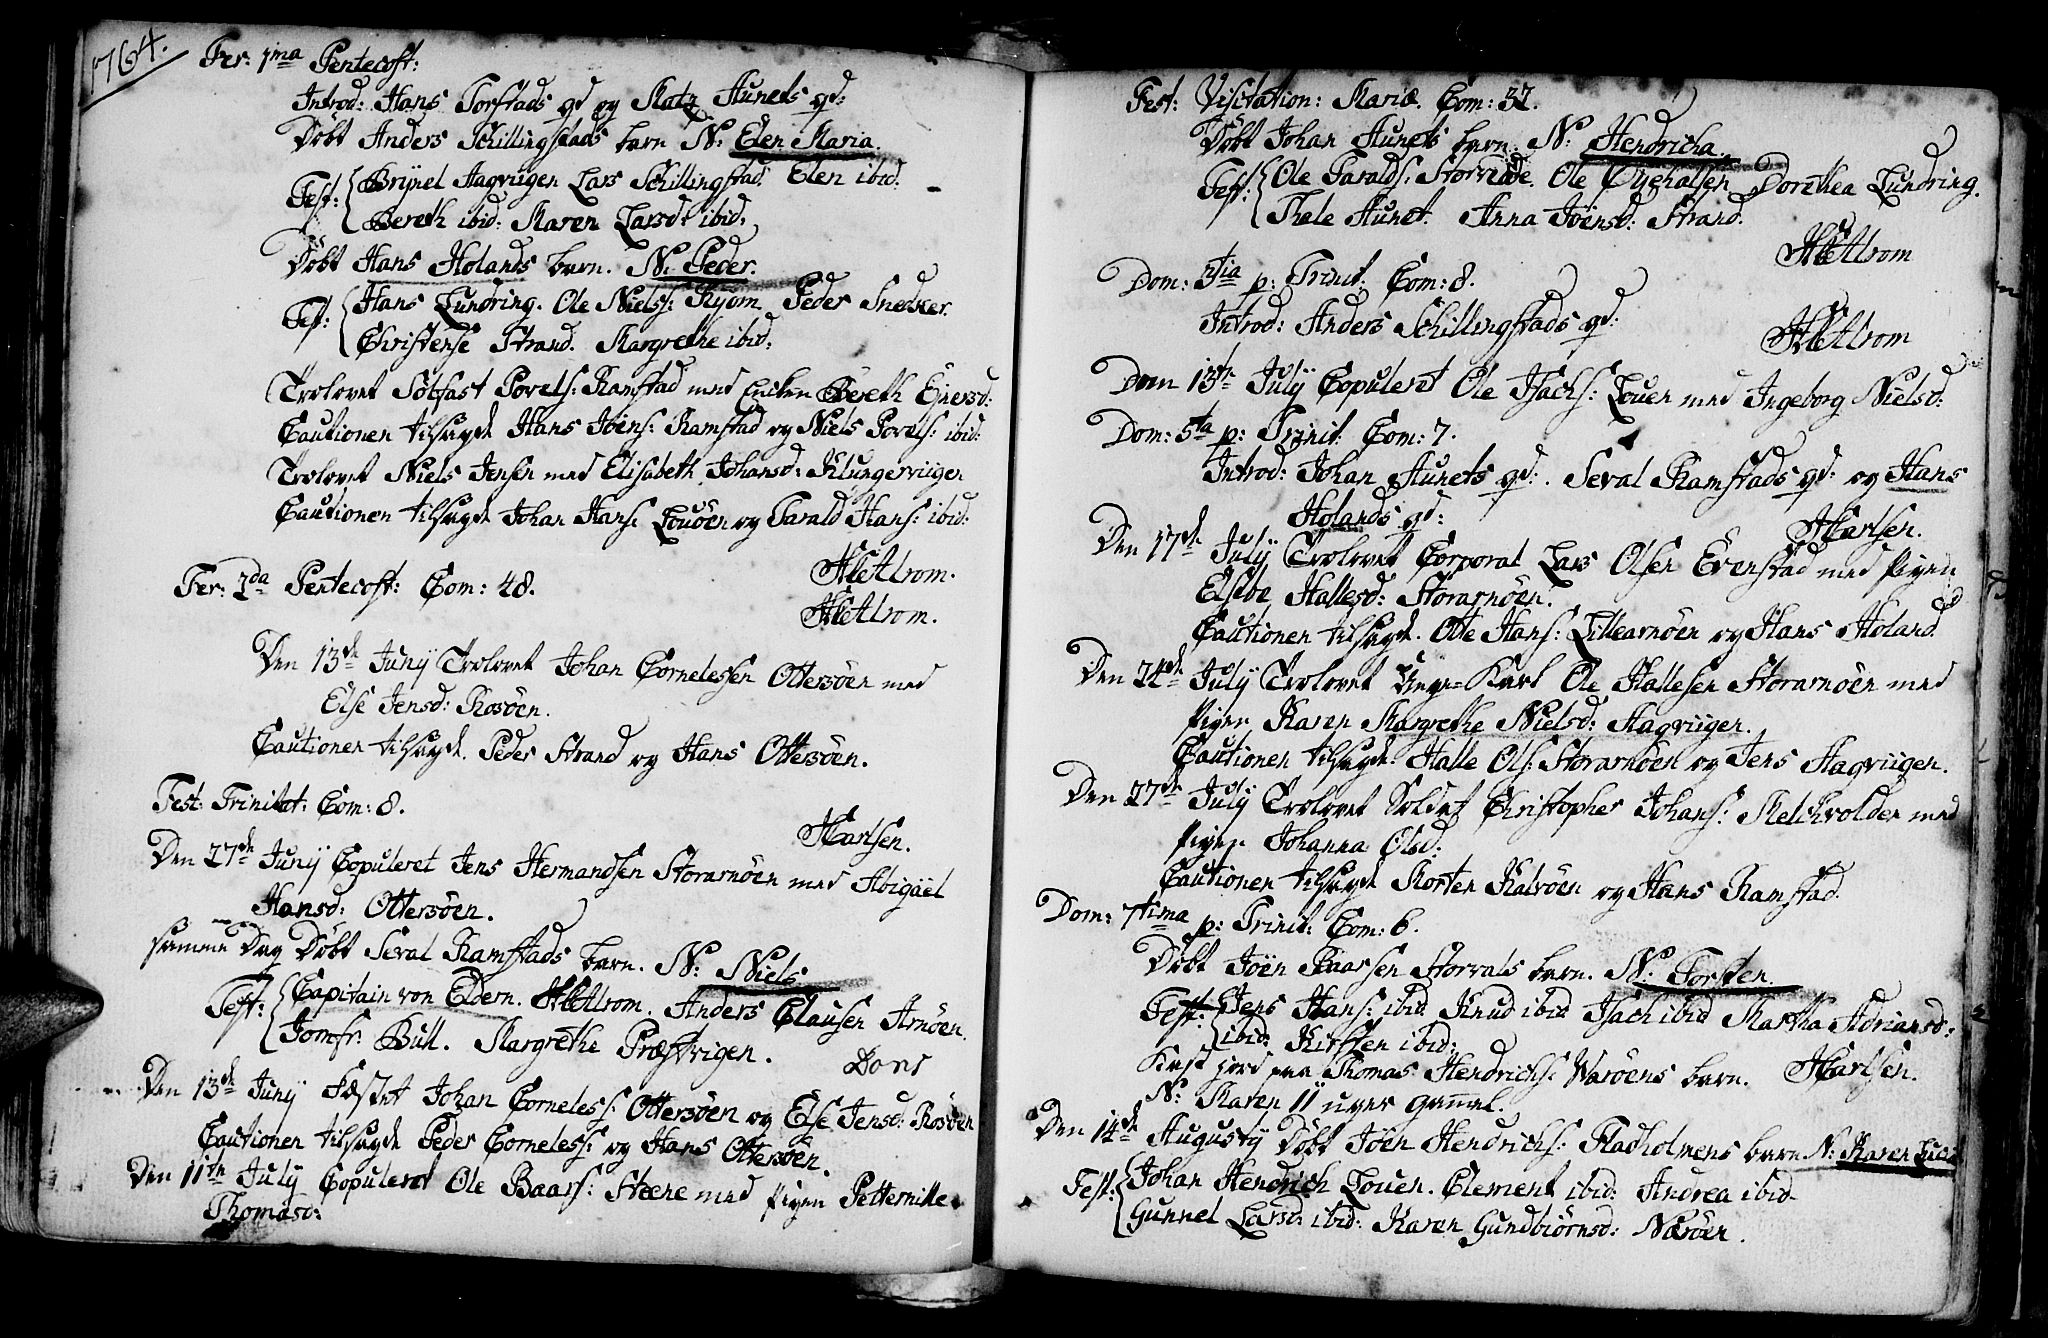 1764.
Fer: 1ma Pentecost:
Introd: Hans Torstads qd og Matz Aunets qd:
Döbt Anders Schillingstads barn N: Elen Maria.
Test: Brÿnel Hagviigen Lars Schillingstad. Elen ibid.
Bereth ibid: Maren Larsd: ibid:
Döbt Hans Holands barn. N: Peder.
Test: Hans Lundring. Ole Niels: Ryom Peder Snedker.
Christense Strand. Margrethe ibid:
Trolovet Solfast Povels: Ramstad med Enken Bereth Ejnersd:
Cautionen tilsagde Hans Jöens: Ramstad og Niels Povels: ibid:
Trolovet Niels Jensen med Elisabeth Johansd: Klungerviigen
Cautionen tilsagde Johan Hans: Louöen og Harald Hans: ibid:
HAlrom.
Fer: 2da Pentecost: Com: 48.
HAlrom.
Den 13de Junÿ Trolovet Johan Cornelessen Ottersöen med
Else Jensd: Rosöen.
Cautionen tilsagde. Peder Strand og Hans Ottersöen.
Fest: Trinitat: Com: 8.
HCarlsen.
Den 27de Junÿ Copuleret Jens Hermandsen Storarnöen med Abigäel
Hansd: Ottersöen.
samme Dag Döbt Seval Ramstads barn. N: Niels
Test: Capitain von Eldern. HAlrom. Anders Clausen Arnöen.
Jomfr: Bull. Margrethe Præstvigen. Dons
Den 13de Junÿ Fæstet Johan Corneless: Ottersöen og Else Jensd: Rosöen
Cautionen tilsagde Peder Corneless: og Hans Ottersöen.
Den 11te Julÿ Copuleret Ole Baars: Steene med Pigen Petternille
Thomasd:
Fest: Visitation: Mariæ. Com: 32.
Döbt Johan Aunets barn. N: Hendricha.
Test: Ole Haralds: Storvede. Ole Öyehalsen Dorethea Lundring.
Thale Aunet. Anna Jöensd: Strand.
HAlrom
Dom: 3tia p: Trinit: Com: 8.
Introd: Anders Schillingstads qd:
HAlrom
Dom 13de Julÿ Copuleret Ole Isachs: Louen med Ingeborg Nielsd:
Dom: 5ta p: Trinit: Com: 7.
Introd: Johan Aunets qd:. Seval Ramstads qd: og Hans
Holands qd:
HCarlsen.
Den 17de Julÿ Trolovet Corporal Lars Olsen Evenstad med Pigen
Elsebe Hallesd: Storarnöen.
Cautionen tilsagde. Otte Hans: Lillearnöen og Hans Holand
Den 24de Julÿ Trolovet Unge-Karl Ole Hallesen Storarnöen med
Pigen Karen Margrethe Nielsd: Hagviigen.
Cautionen tilsagde Halle Ols: Storarnöen og Jens Hagviigen.
Den 27de Julÿ Trolovet Soldat Christopher Johans: Melchvolden med
Pigen Johanna Olsd:
Cautionen tilsagde Morten Kalvöen og Hans Ramstad.
Dom: 7tima p: Trinit: Com: 6.
Döbt Jöen Baarsen Storvals barn. N: Torsten.
Test: Jens Hans: ibid. Knud ibid Isach ibid Martha Adriansd:
ibid: Kirsten ibid:
Kast jord paa Thomas Hendrichs: Waröens barn.
HCarlsen.
N: Maren 11 uger gamel.
Den 14de Augustÿ Döbt Jöen Hendrichs: Fladholmens barn N: Karen
Test: Johan Hendrich Louen. Clement ibid: Andrea ibid
Gunnel Larsd: ibid: Karen Gundbiörnsd: Næröen.